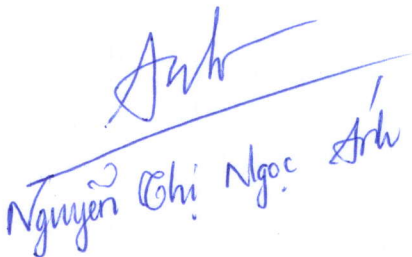 Anh
Nguyễn Thị Ngọc Ánh